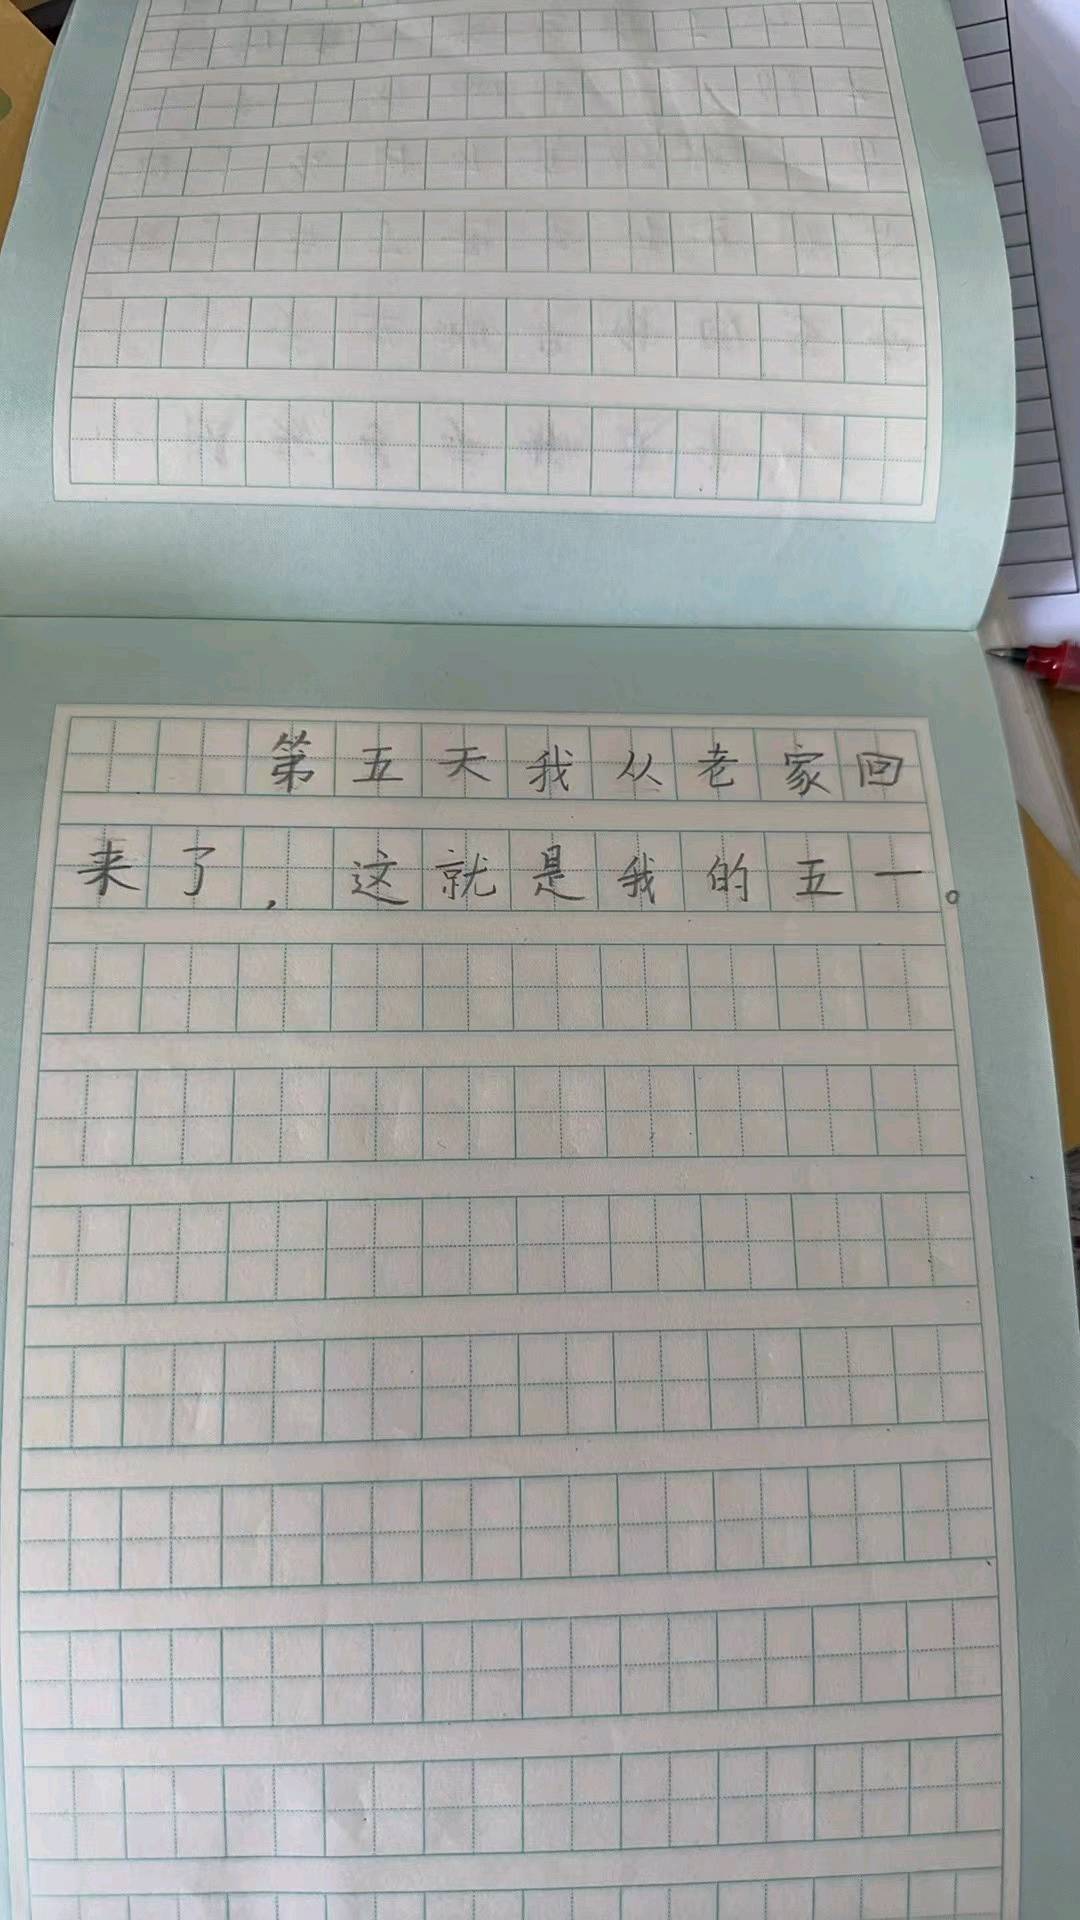 第五天我从老家回
来了，这就是我的五一。